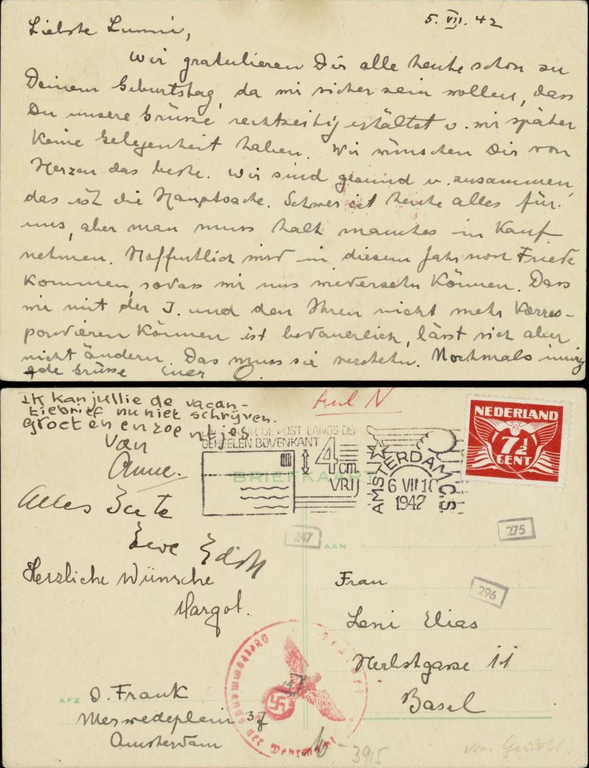 5. VII. 42
Liebste Lunni,
Wir gratulieren Dir alle heute schon zu
Deinem Geburtstag, da wir sicher sein wollen, dass
Du unsere Grüsse rechtzeitig erhältst u. wir später
keine Gelegenheit haben. Wir wünschen Dir von
Herzen das beste. Wir sind gesund u. zusammen,
das ist die Hauptsache. Schwer ist heute alles für
uns, aber man muss halt manches in Kauf
nehmen. Hoffentlich wird in diesem Jahr noch Friede
kommen, sodass wir uns wiedersehen können. Dass
wir mit der J. und den Ihren nicht mehr korres-
pondieren können ist bedauerlich, lässt sich aber
nicht ändern. Das muss sie verstehen. Nochmals innig
Grüsse Euer O.
Ik kan jullie de vacan-
tiebrief nu niet schrijven.
groeten en zoentjes
van
Anne.
Alles Gute
Eure Edith
Herzliche Wünsche
Margot.
AFZ
O. Frank
Merwedeplein 37
Amsterdam
DE POST LANGS DE
BOVENKANT
4 cm.
VRIJ
BRIEFKAART
AMSTERDAM C.S
6 VII 1942
NEDERLAND
7½
CENT
247
275
296
AAN
Frau
Leni Elias
Herbstgasse 11
Basel
Geöffnet
Oberkommando der Wehrmacht
3915